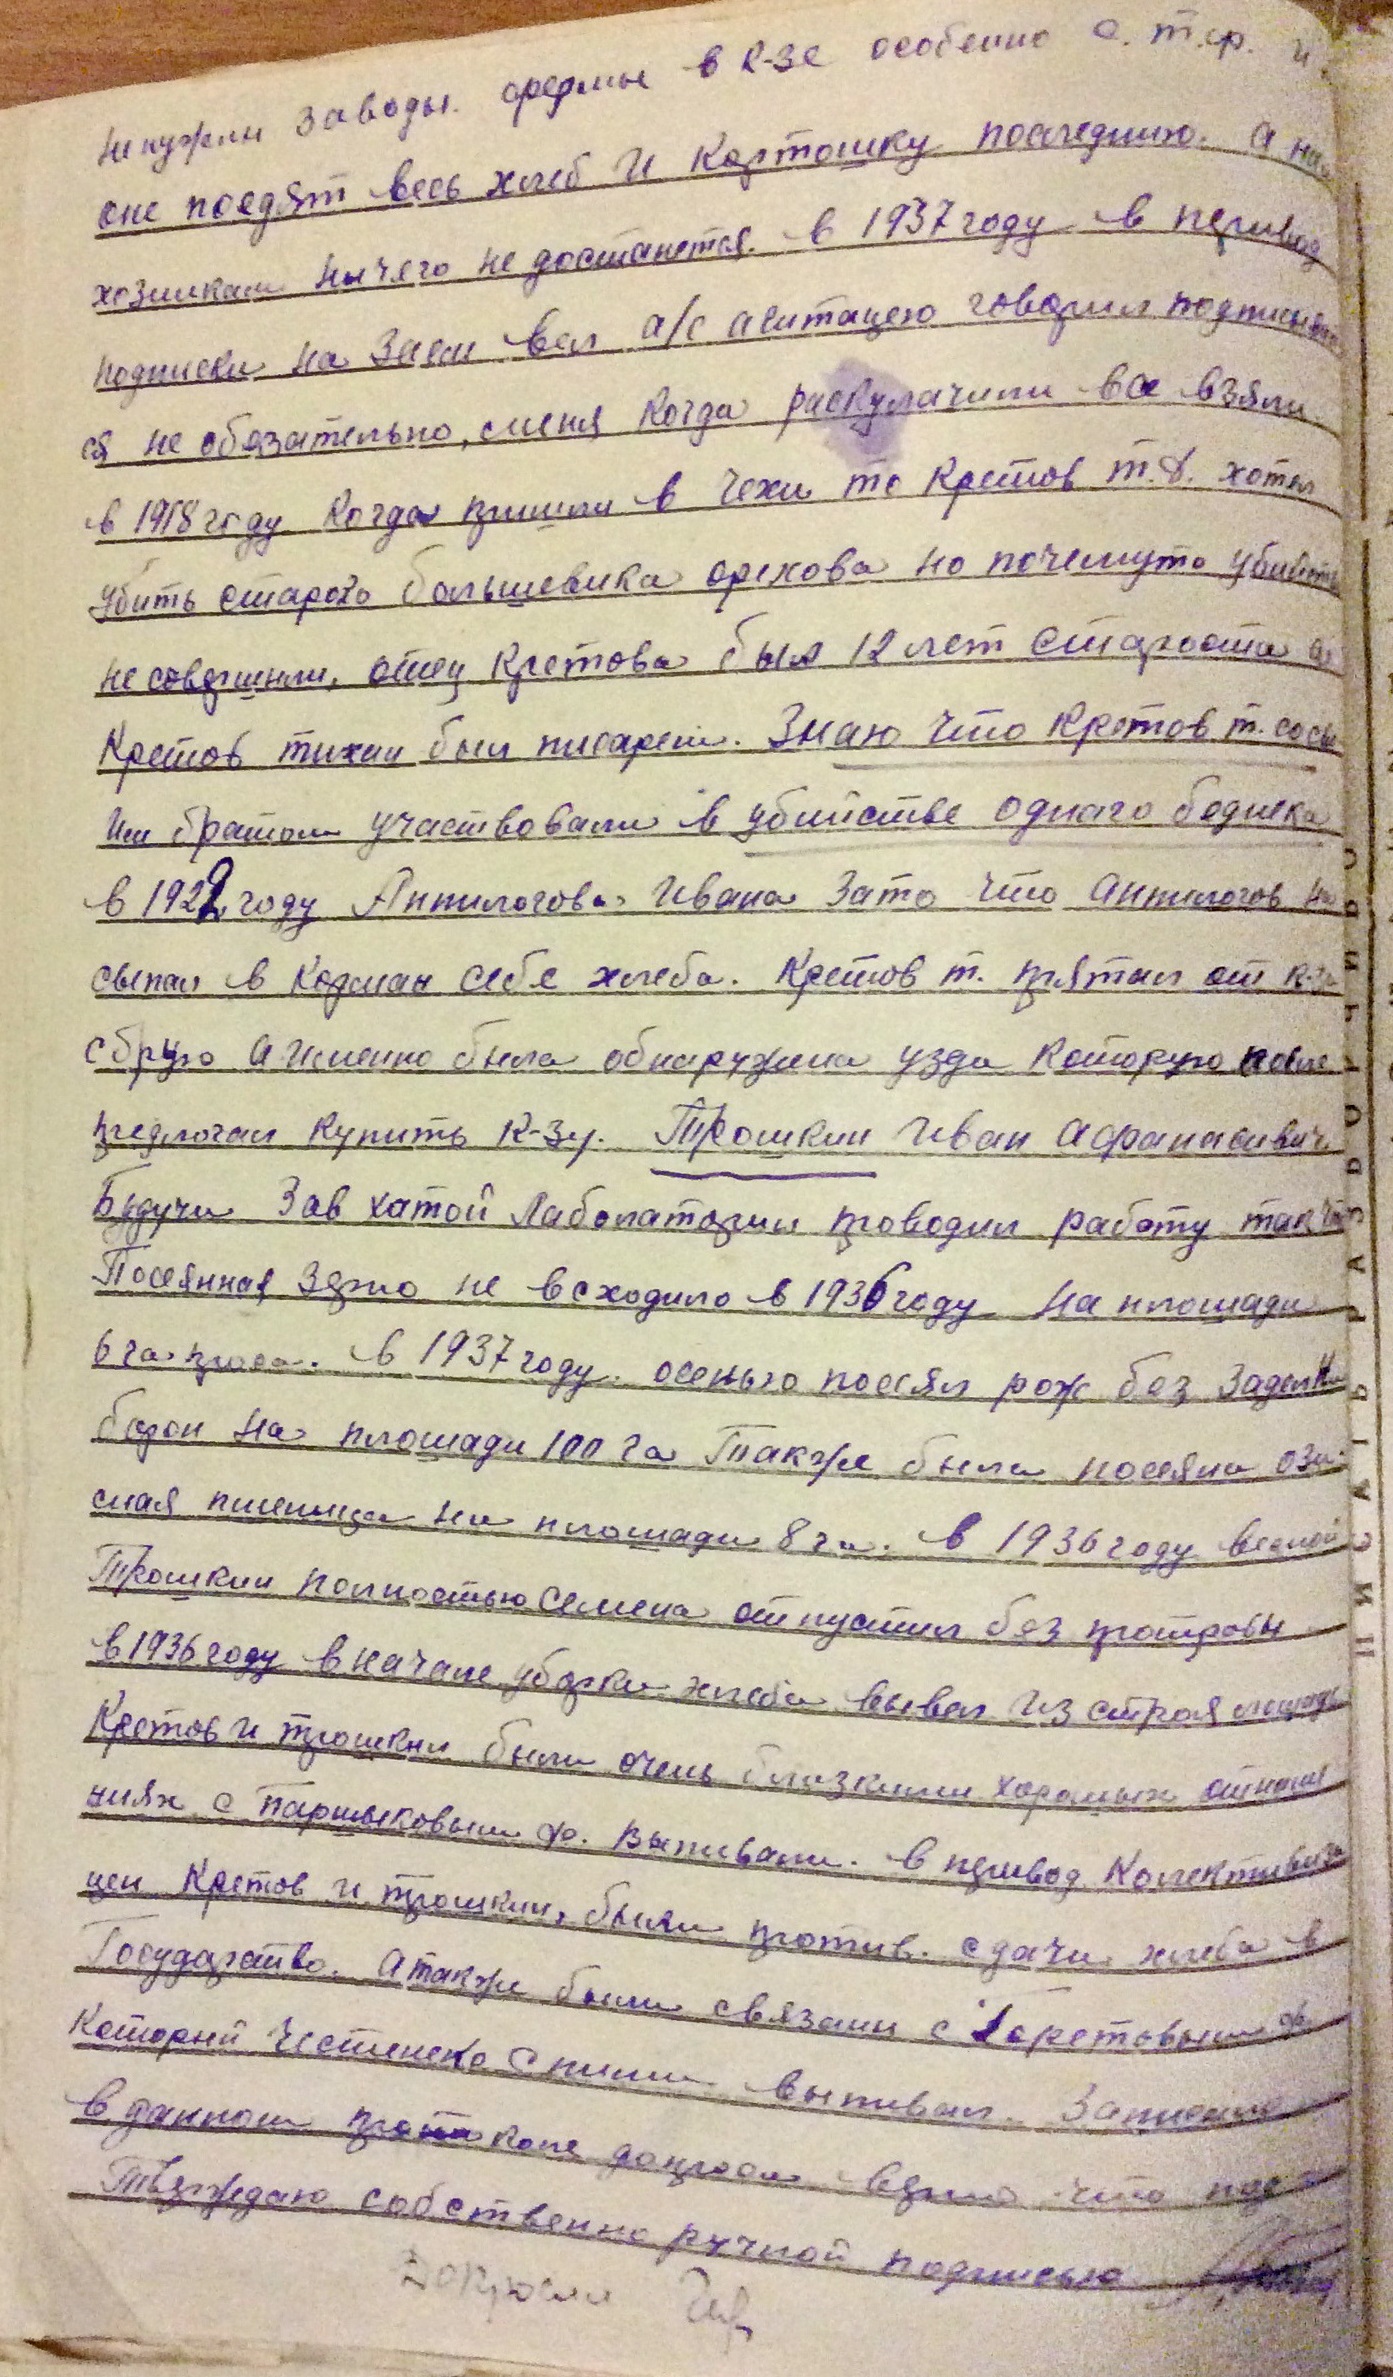 не нужны заводы. фермы в к-зе особенно с. т.ф. и
оне поедят весь хлеб и картошку последнию. а на
хозяикам ничего не достанется. в 1937 году в перивод
подписки на Заем вел а/с агитацею говорил подписыват
ся не обязательно, меня когда раскулачили все взяли
в 1918 году когда пришли в чехи то Кретов т.д. хотел
убить старого большевика орехова но почемуто убииств
не совершили, отец Кретова был 12 лет старостои а
Кретов тихан был писарем. Знаю что Кретов т. сосво
им братом участвовали в убийстве однаго бедняка
в 1922 году Антилогова Ивана Зато что антилогов на
сыпал в Карман себе хлеба. Кретов т. прятал от к-за
сбрую аименно была обнаружена узда которую после
предлогал купить к-зу. Трошкин Иван афанасивич
Будучи Зав хатой Лаболатории проводил работу так что
Посеянная Зерно не всходило в 1936 году на площади
6 га проса. в 1937 году. осенью посеял рож без заделки
борон на площади 100 га Также была посеяна ози
мая пшеница на площади 8 га. в 1936 году весной
Трошкин полностью семена отпустил без протровы
в 1936 году вначале уборки хлеба вывел из строя лошадь
Кретов и трошкин были очень близкими хороших отноше
ниях с Паршыковым ф. выпивали. в перивод Колективиза
цеи Кретов и трошкин, были против. сдачи хлеба в
Государство. атакже были связаны с
который частенеко сними выпивал. Записано
в данном протоколе допроса верно что под
Тверждаю собственно ручной подписью
Допросил